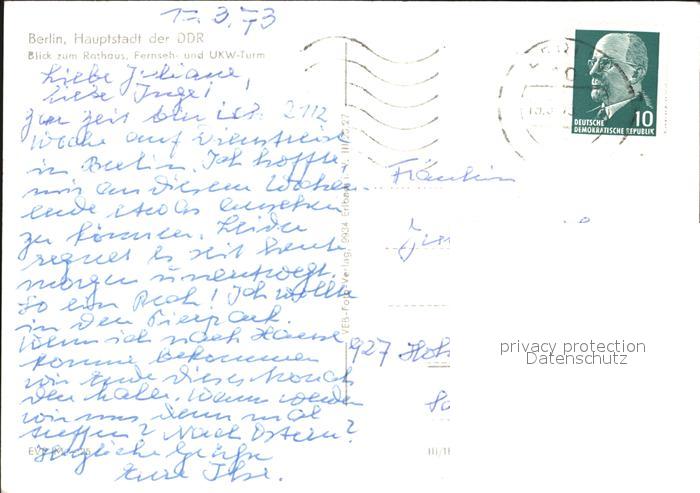 17.3.73
Berlin, Hauptstadt der DDR
Blick zum Rathaus, Fernseh- und UKW-Turm
Liebe Juliane,
liebe Inge!
Zur Zeit bin ich 2 1/2
Woche auf Dienstreise
in Berlin. Ich hoffte
mir an diesem Wochen-
ende etwas ansehen
zu können. Leider
regnet es seit heute
morgen unentwegt.
So ein Pech! Ich wollte
in den Tierpark.
Wenn ich nach Hause
komme bekommen
wir Ende dieses Monats
den Wann werden
wir uns denn mal
treffen? Nach Ostern?
Herzliche Grüße
Eure Ilse.
VEB Foto-Verlag, 9934 Erlbach i. V.
10
DEUTSCHE
DEMOKRATISCHE REPUBLIK
Fräulein
927 Hoh
privacy protection
Datenschutz